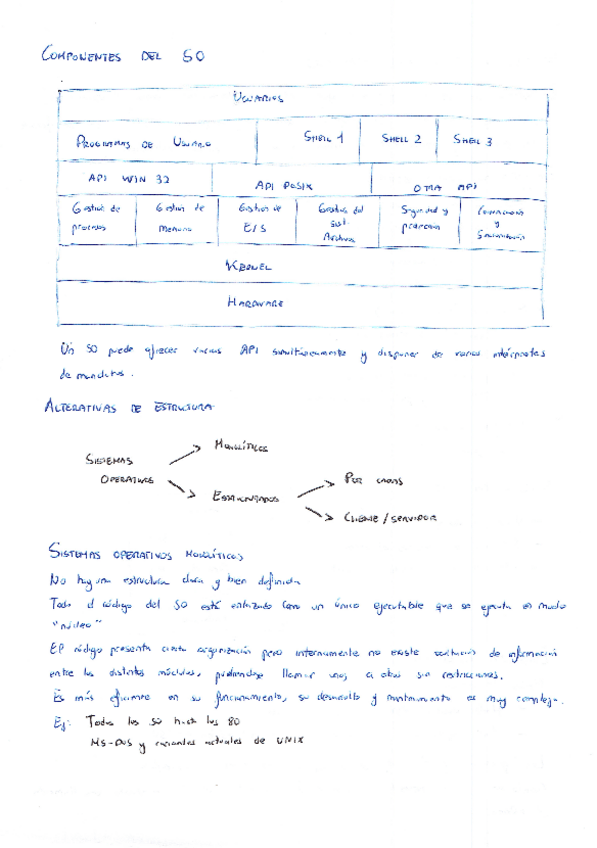 COMPONENTES DEL SO
USUARIOS
PROGRAMAS DE USUARIO SHELL 1 SHELL 2 SHELL 3
API WIN 32 API POSIX OTRA API
Gestión de procesos Gestión de memoria Gestión de E/S Gestión del sist. Archivos Seguridad y protección Comunicación y Sincronización
KERNEL
HARDWARE
Un SO puede ofrecer varias API simultáneamente y disponer de varios intérpretes
de mandatos.
ALTERATIVAS DE ESTRUCTURA
SISTEMAS
OPERATIVOS
MONOLÍTICOS
ESTRUCTURADOS
POR CAPAS
CLIENTE / SERVIDOR
SISTEMAS OPERATIVOS MONOLÍTICOS
No hay una estructura clara y bien definida
Todo el código del SO está enlazado como un único ejecutable que se ejecuta en modo
"núcleo"
El código presenta cierta organización pero internamente no existe ocultación de información
entre los distintos módulos, pudiendose llamar unos a otros sin restricciones.
Es más eficiente en su funcionamiento, su desarrollo y mantenimiento es muy complejo.
Ej: Todos los SO hasta los 80
MS-DOS y variantes actuales de UNIX